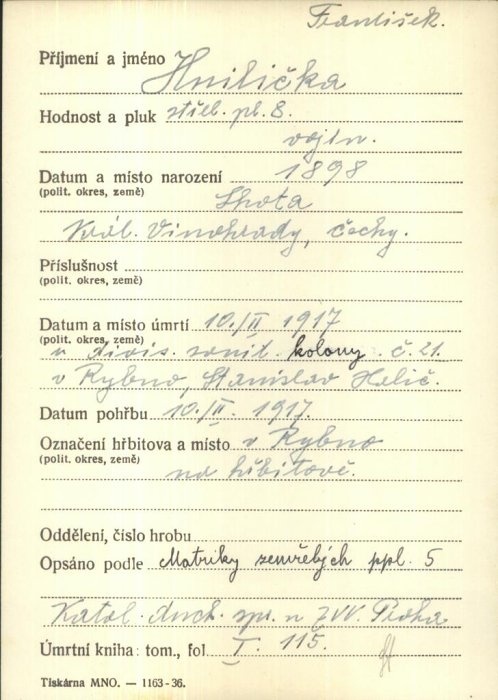 František.
Příjmení a jméno Hnilička
Hodnost a pluk střel. pl. 8.
vojín.
Datum a místo narození 1898
(polit. okres, země) Lhota
Král. Vinohrady, Čechy.
Příslušnost
(polit. okres, země)
Datum a místo úmrtí 10./II. 1917
(polit. okres, země)
u divis. sanit. kolony. č. 21.
v Rybno, Stanislav Halič.
Datum pohřbu 10./II. 1917.
Označení hřbitova a místo v Rybno
(polit. okres, země) na hřbitově.
Oddělení, číslo hrobu
Opsáno podle Matriky zemřelých ppl. 5
Katol. duch. spr. u ZVV. Praha
Úmrtní kniha: tom., fol. I. 115.
Tiskárna MNO. — 1163-36.